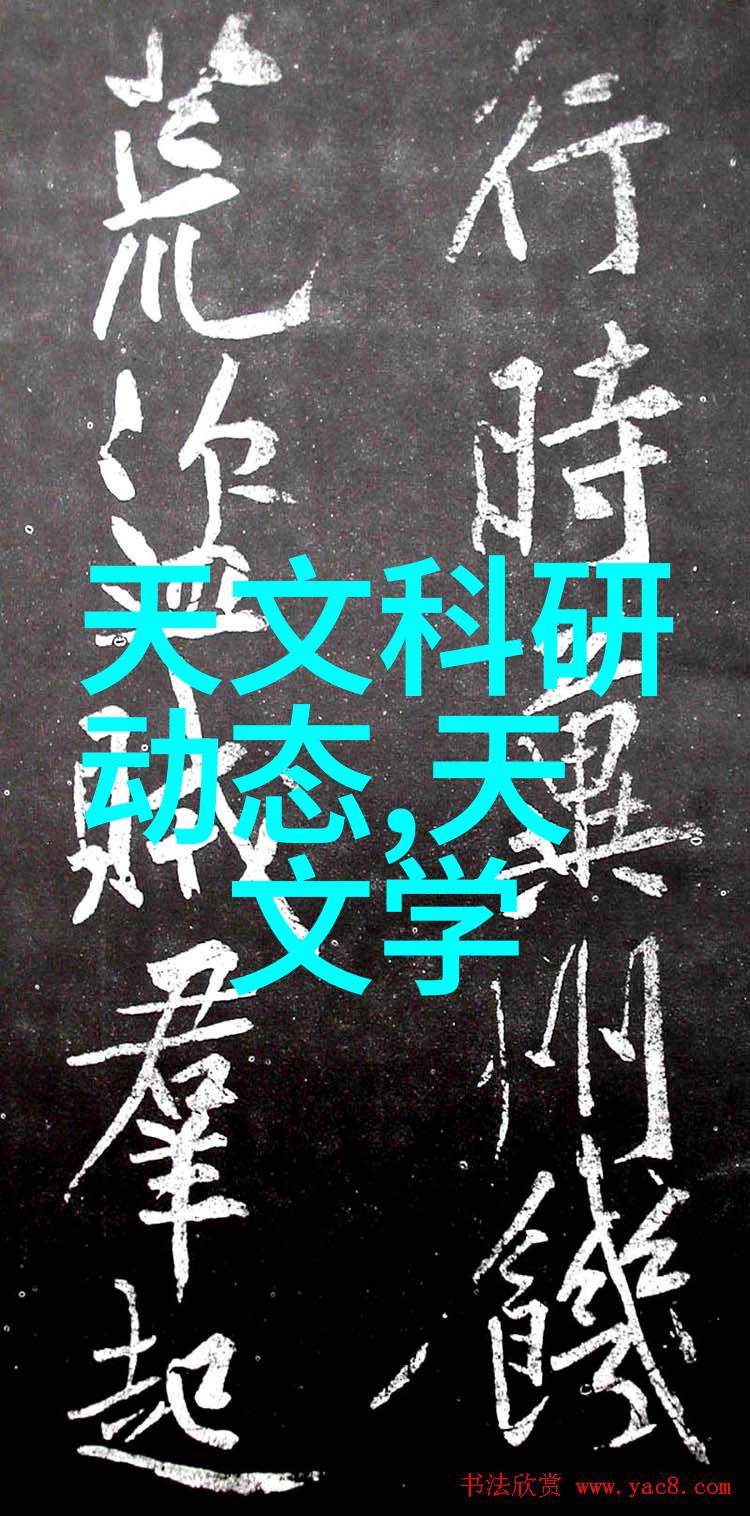 行時冀州饑
荒盜賊羣起
天文科研
动态,天
文学
书法欣赏 www.yac8.com